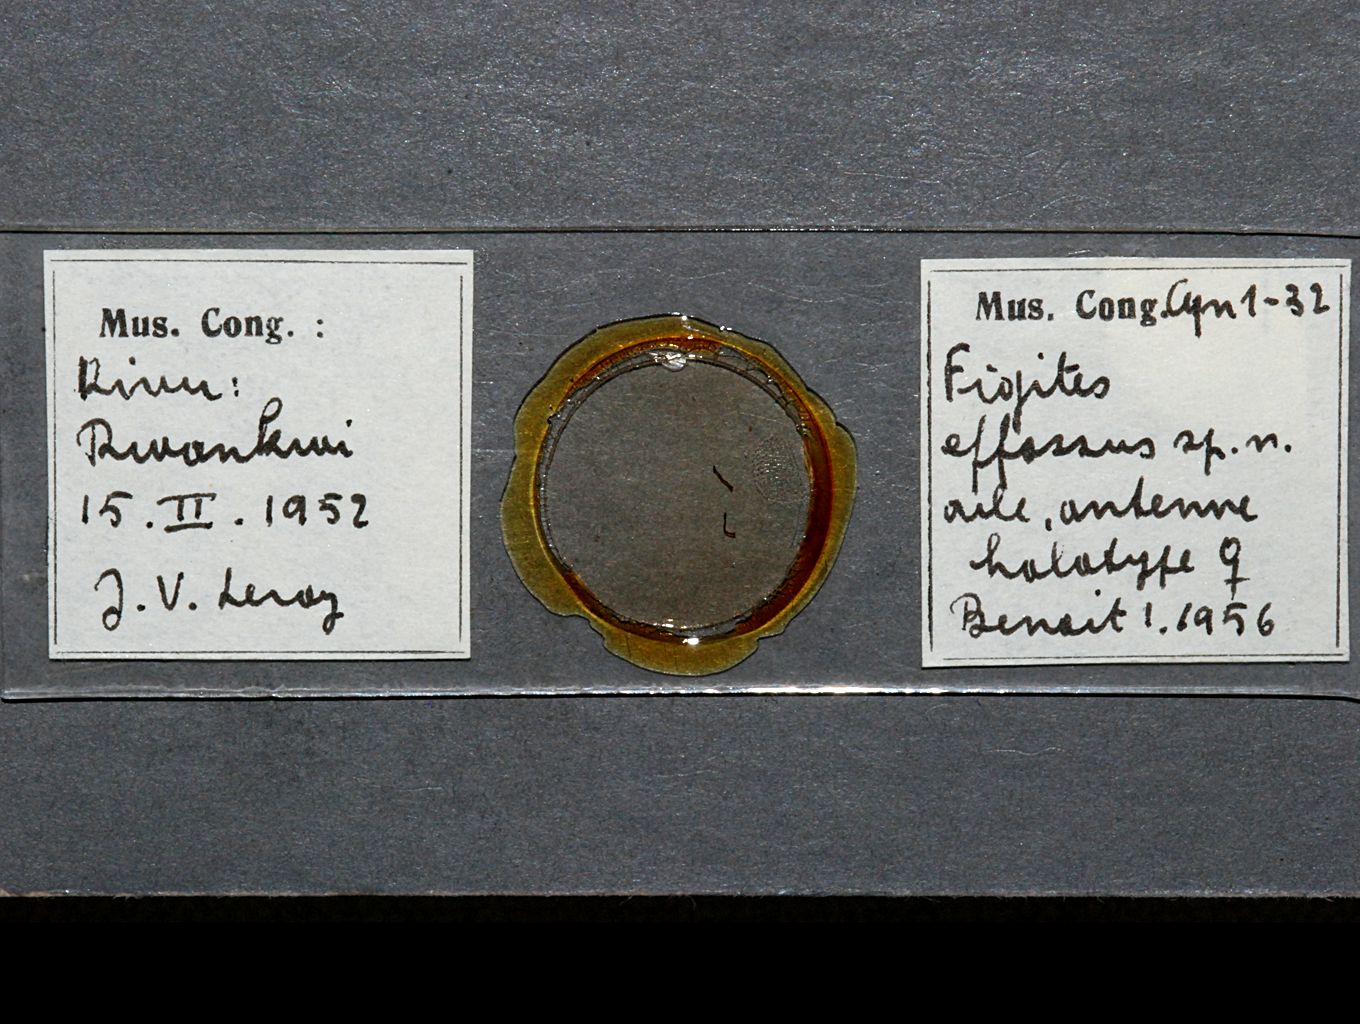 Mus. Cong. :
Kivu:
Rwankwi
15.II.1952
J.V. Leroy
Mus. Cong. Cyn 1-32
Figites
effossus sp.n.
aile, antenne
holotype ♀
Benoit 1.1956